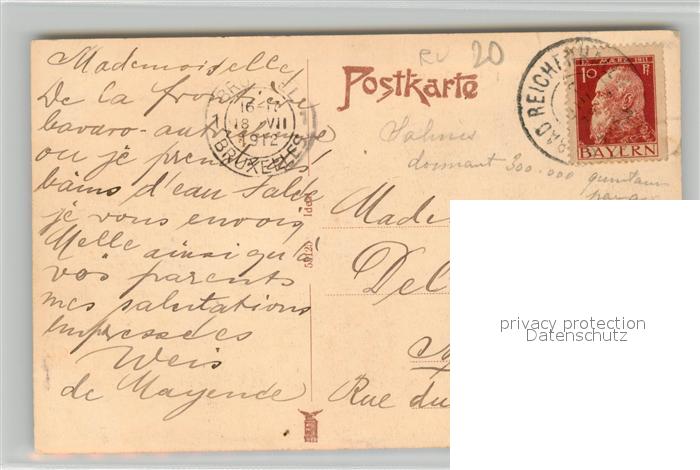 Mademoiselle
De la frontière
bavaro-autrichienne
ou je prends les
bains d'eau Salée
je vous envoie
Melle ainsi qu'à
vos parents
mes salutations
empressées
Weis
de Mayence
BRUXELLES
16-17
18 VII
1912
BRUXELLES
RV 20
Postkarte
BAD REICHENH
12. MÄRZ 1911
10 Pf
BAYERN
Salines
donnant 300.000 quintaux
par an
53125 Ideal
Made
Del
Rue du
privacy protection
Datenschutz